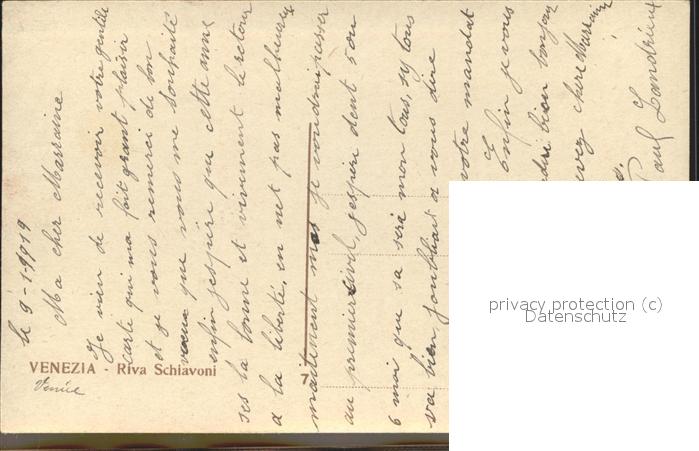 le 9-1-1919
Ma cher Marraine
Je vien de recevoir votre gentille
carte qui ma fait grant plaisir
et je vous remerci de bon
vœux que vous me souhaité
enfin j'espire que cette anné
ses la bonne et vivement le retour
a la liberté, on net pas malheureux
maitenent mas je voudrai passer
au premier civil, j'espire dent 5 ou
6 moi que sa sera mon tous, sy tous
va bien j'oubliait a vous dire
votre mandat
Enfin je vous
bien bonjour
cher Marraine
Paul Landrieux
VENEZIA - Riva Schiavoni
Venise
7
privacy protection (c)
Datenschutz